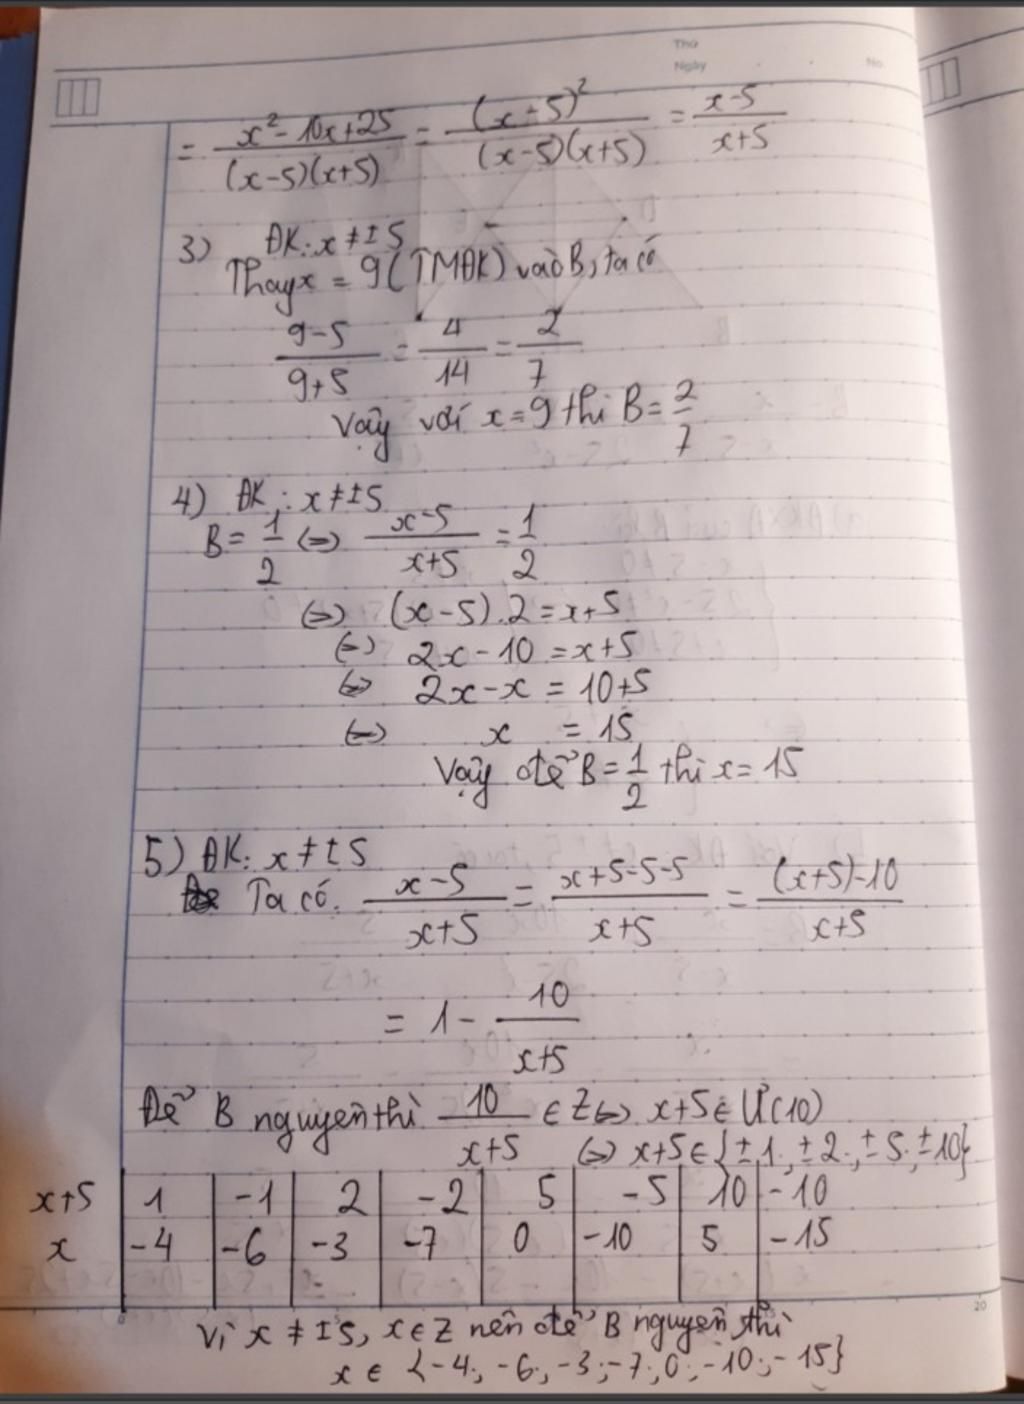 Thứ
Ngày No.
= \frac{x^2-10x+25}{(x-5)(x+5)} = \frac{(x-5)^2}{(x-5)(x+5)} = \frac{x-5}{x+5}
3) ĐK: x ≠ ±5
Thay x = 9 (TMĐK) vào B, ta có
\frac{9-5}{9+5} = \frac{4}{14} = \frac{2}{7}
Vậy với x = 9 thì B = \frac{2}{7}
4) ĐK: x ≠ ±5
B = \frac{1}{2} <=> \frac{x-5}{x+5} = \frac{1}{2}
<=> (x-5).2 = x+5
<=> 2x-10 = x+5
<=> 2x-x = 10+5
<=> x = 15
Vậy để B = \frac{1}{2} thì x = 15
5) ĐK: x ≠ ±5
Ta có. \frac{x-5}{x+5} = \frac{x+5-5-5}{x+5} = \frac{(x+5)-10}{x+5}
= 1 - \frac{10}{x+5}
Để B nguyên thì \frac{10}{x+5} ∈ Z <=> x+5 ∈ Ư(10)
<=> x+5 ∈ {±1; ±2; ±5; ±10}
x+5 1 -1 2 -2 5 -5 10 -10
x -4 -6 -3 -7 0 -10 5 -15
0 15 20
Vì x ≠ ±5, x ∈ Z nên để B nguyên thì
x ∈ {-4; -6; -3; -7; 0; -10; -15}